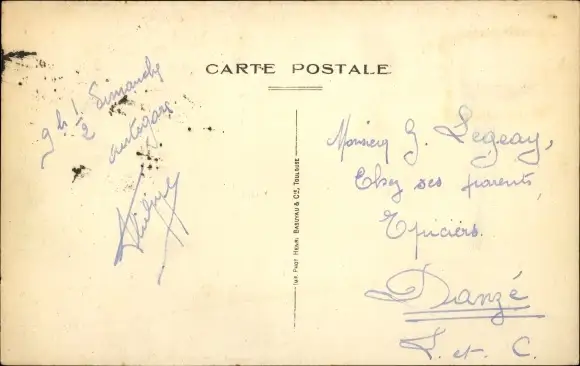 CARTE POSTALE
9 h 1/2 Dimanche
autogare
Monsieur G. Legeay,
Chez ses parents,
Epiciers.
Danzé
L. et. C.
IMP. PHOT. HENRI BASUYAU & CIE, TOULOUSE